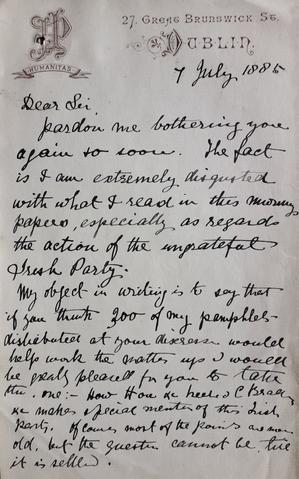 HUMANITAS
27, GREAT BRUNSWICK ST.
DUBLIN
7 July 1885
Dear Sir,
pardon me bothering you
again so soon. The fact
is I am extremely disgusted
with what I read in this mornings
papers, especially as regards
the action of the ungrateful
Irish Party.
My object in writing is to say that
if you think 200 of my pamphlets
distributed at your discretion would
help work the matter up I would
be greatly pleased for you to take
them. one:— How
makes special mention of this Irish
Party. Of course most of the points are now
old, but the question cannot be, till
it is settled.